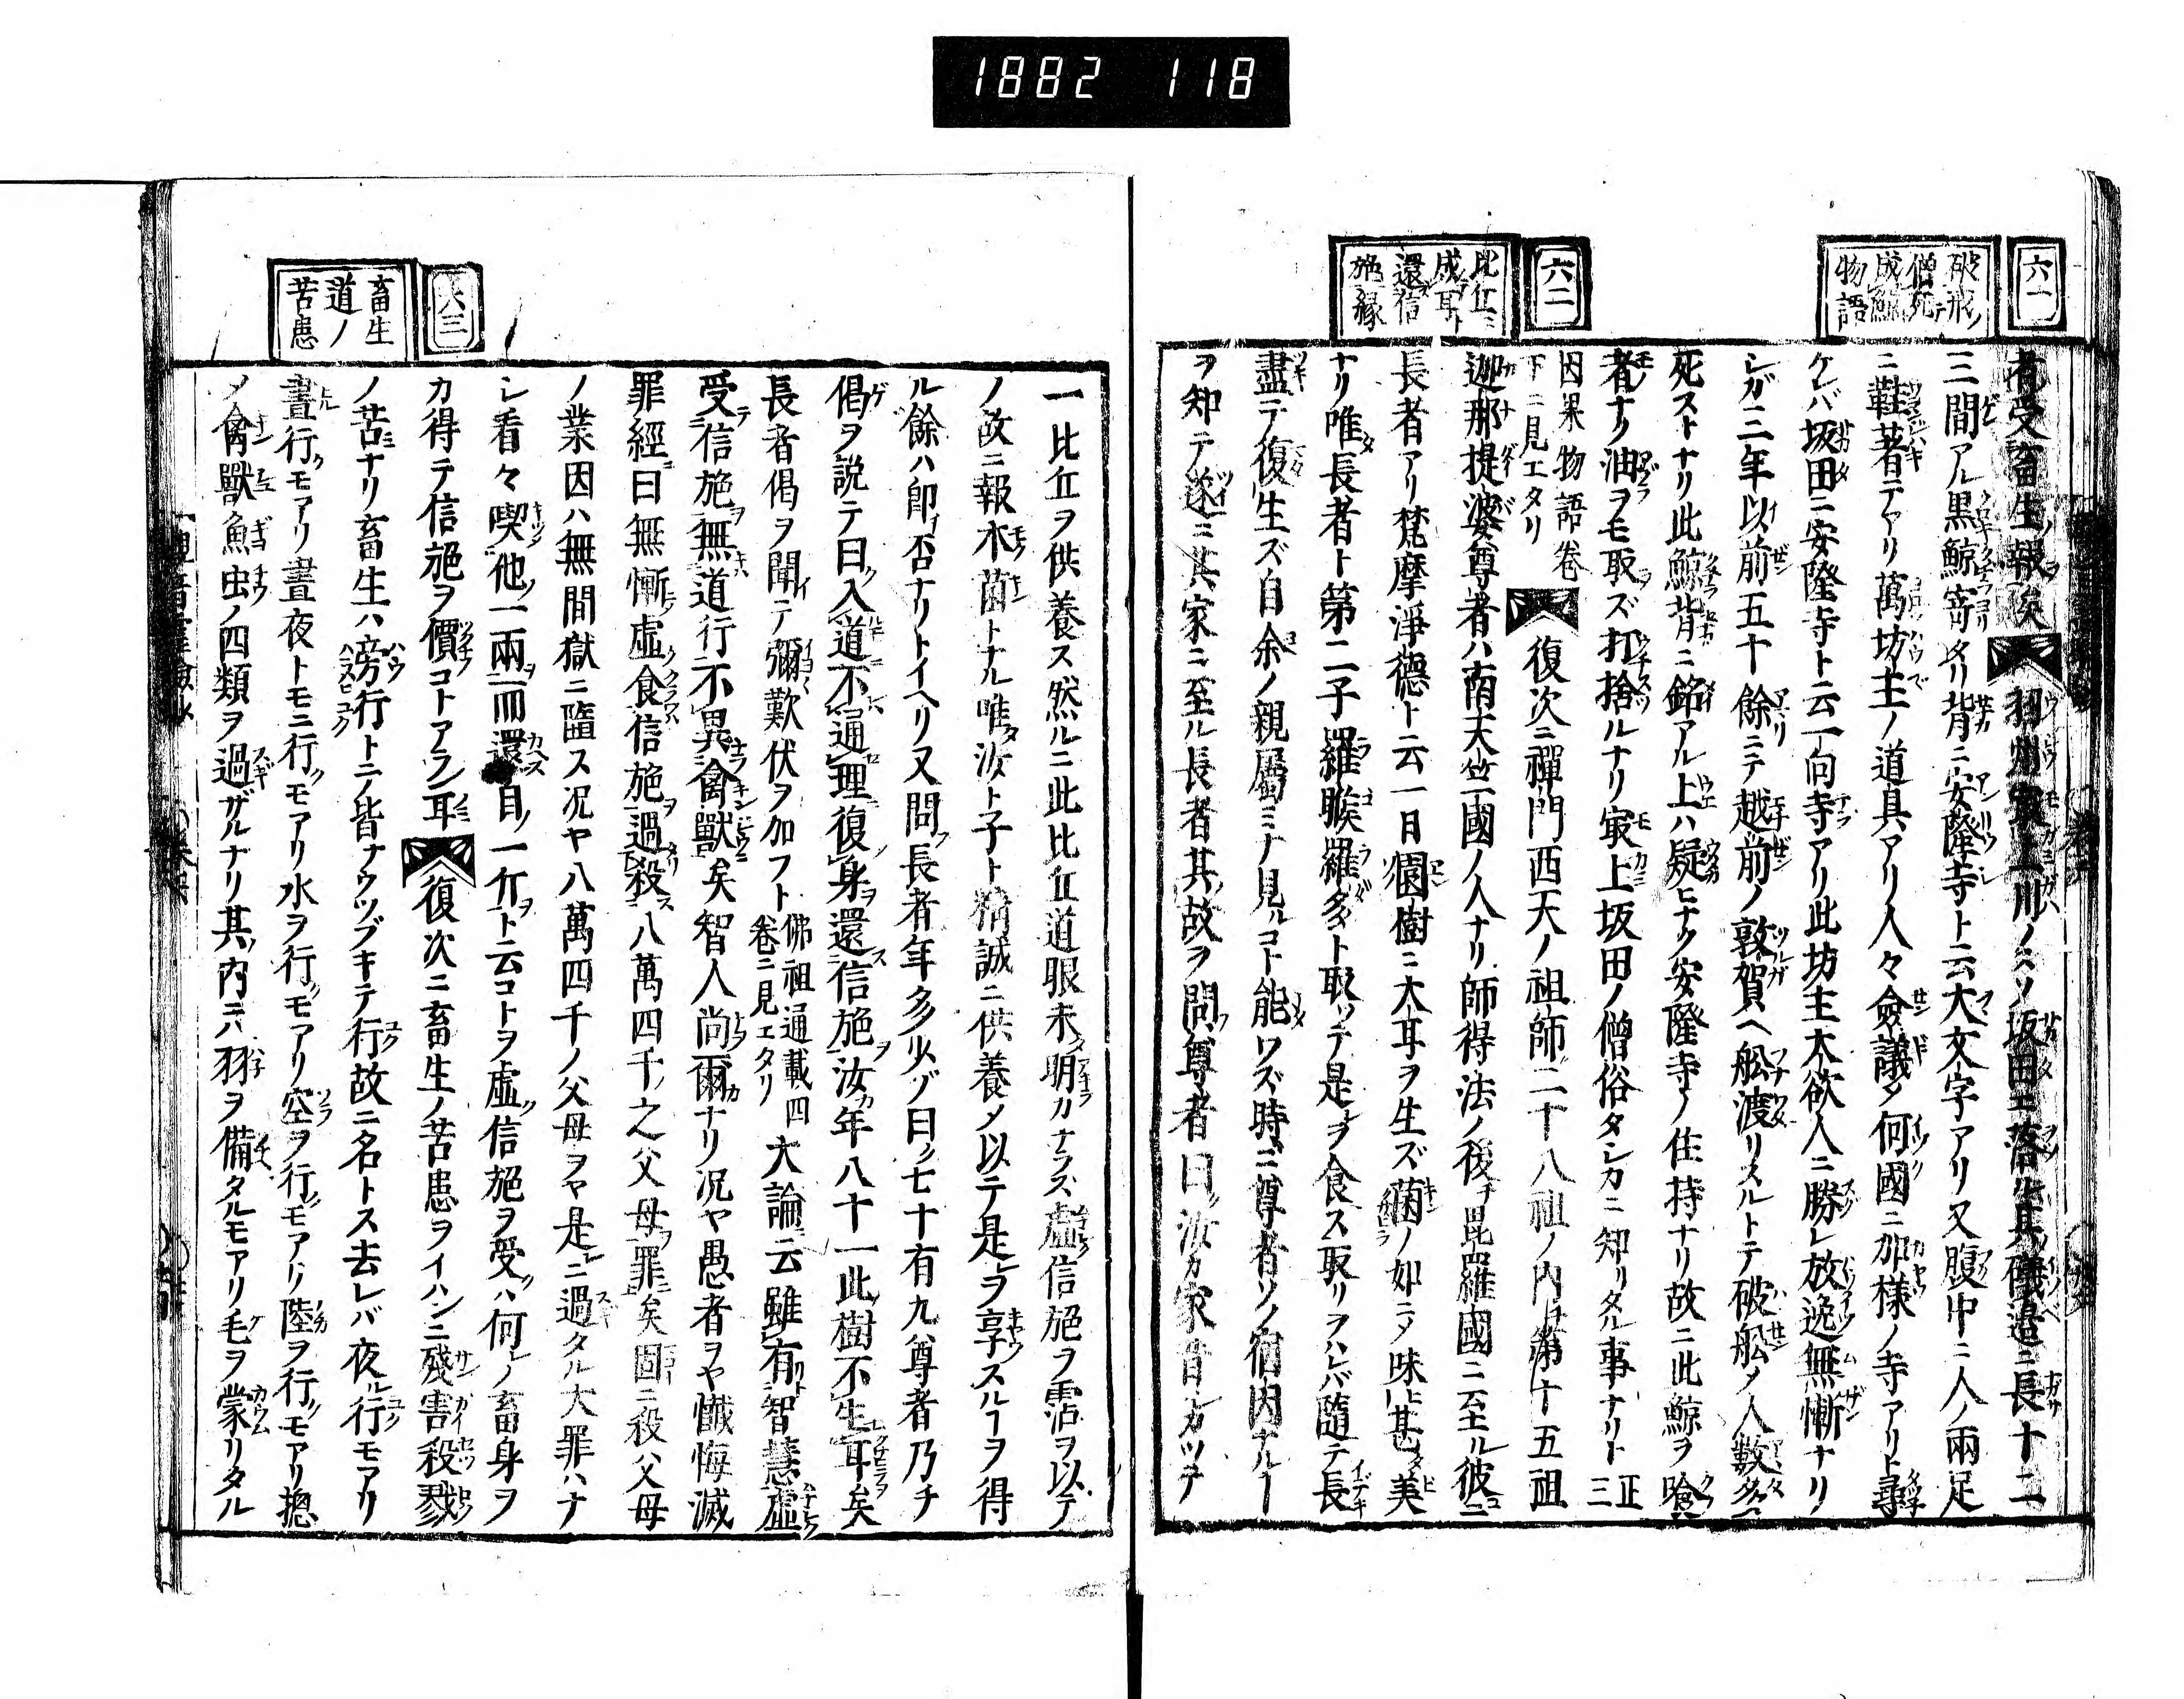 1882 118
六一
破戒ノ
僧死テ
成鯨
物語
者受畜生ノ報ヲ矣 羽州最上川ノスソ坂田エ落ル其礒邉ニ長十二
三間アル黒鯨寄レリ背ニ安隆寺ト云大文字アリ又腹中ニ人ノ兩足
ニ鞋著テアリ萬坊主ノ道具アリ人々僉議メ何國ニ加様ノ寺アリト尋
ケレバ坂田ニ安隆寺ト云一向寺アリ此坊主大欲人ニ勝レ放逸無慚ナリ
シガ三年以前五十餘ニテ越前ノ敦賀ヘ舩渡リスルトテ破舩メ人數多
死ストナリ此鯨背ニ銘アル上ハ疑ヒナク安隆寺ノ住持ナリ故ニ此鯨ヲ喰
者ナク油ヲモ取ズ打捨ルナリ最上坂田ノ僧俗タシカニ知リタル事ナリト 正三
因果物語巻
下ニ見エタリ
六二
比丘
成耳ト
還信
施縁
復次ニ禪門西天ノ祖師二十八祖ノ内第十五祖
迦那提婆尊者ハ南天竺國ノ人ナリ師得法ノ後チ毘羅國ニ至ル彼ニ
長者アリ梵摩淨德ト云一日園樹ニ大耳ヲ生ズ菌ノ如ニメ味ヒ甚タ美
ナリ唯長者ト第二子羅睺羅多ト取ッテ是ヲ食ス取リヲハレバ隨テ長
盡テ復生ズ自余ノ親屬ミナ見ルコト能ワズ時ニ尊者ソノ宿因ナルヿ
ヲ知テ遂ニ其家ニ至ル長者其故ヲ問フ尊者曰ク汝カ家昔シカツテ
一比丘ヲ供養ス然ルニ此比丘道眼未タ明カナラズ虛ク信施ヲ霑ヲ以テ
ノ故ニ報木菌トナル唯汝ト子ト精誠ニ供養メ以テ是ヲ享スルヿヲ得
ル餘ハ即否ナリトイヘリ又問長者年多少ゾ曰ク七十有九尊者乃チ
偈ヲ説テ曰ク入道不通理復身還信施汝年八十一此樹不生耳矣
長者偈ヲ聞テ彌歎伏ヲ加フト 佛祖通載四
巻ニ見エタリ 大論云雖有智慧虛
受信施無道行不異禽獸矣智人尚爾ナリ况ヤ愚者ヲヤ懺悔滅
罪經曰無慚虛食信施過殺八萬四千之父母罪矣固ニ殺ハ父母
ノ業因ハ無間獄ニ墮ス况ヤ八萬四千ノ父母ヲヤ是ニ過タル大罪ハナ
シ看々喫他一兩而還自一斤ト云コトヲ虛ク信施ヲ受ハ何レノ畜身ヲ
カ得テ信施ヲ價コトアラン耳
六三
畜生
道ノ
苦患
復次ニ畜生ノ苦患ヲイハンニ殘害殺戮
ノ苦ナリ畜生ハ旁行トニノ皆ナウツブキテ行故ニ名トス去レバ夜ル行モアリ
晝行モアリ晝夜トモニ行モアリ水ヲ行モアリ空ヲ行モアリ陸ヲ行モアリ摠
メ禽獸魚虫ノ四類ヲ過ザルナリ其内ニハ羽ヲ備タルモアリ毛ヲ蒙リタル